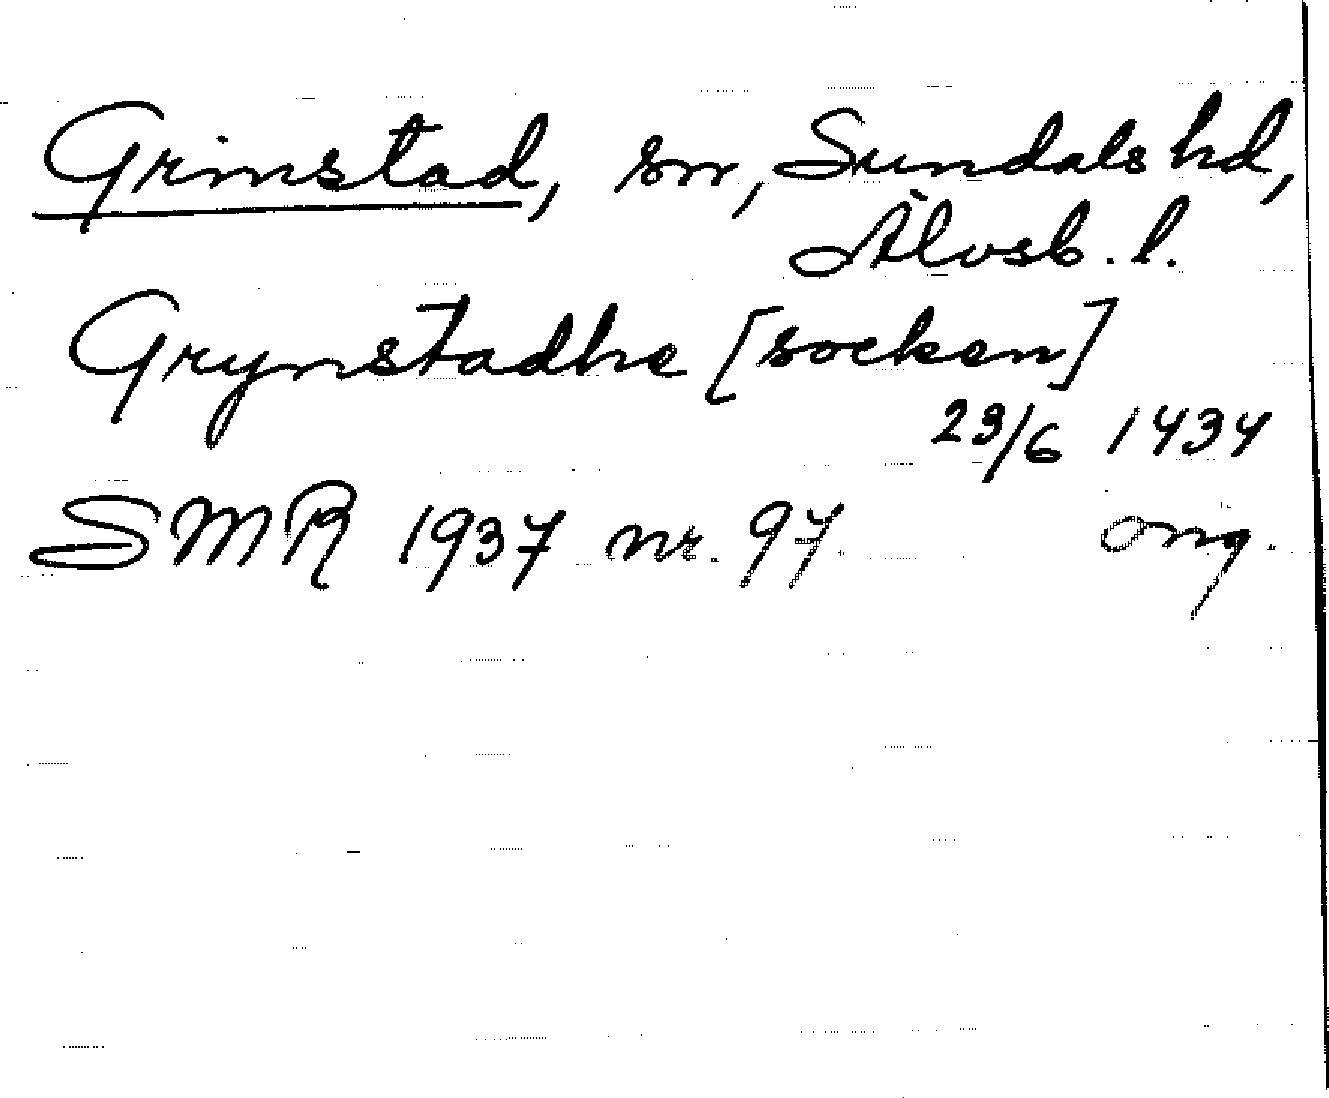 Grinstad, sn, Sundals hd,
Älvsb. l.
Grynstadhe [socken]
23/6 1434
SMR 1937 nr. 97 orig.